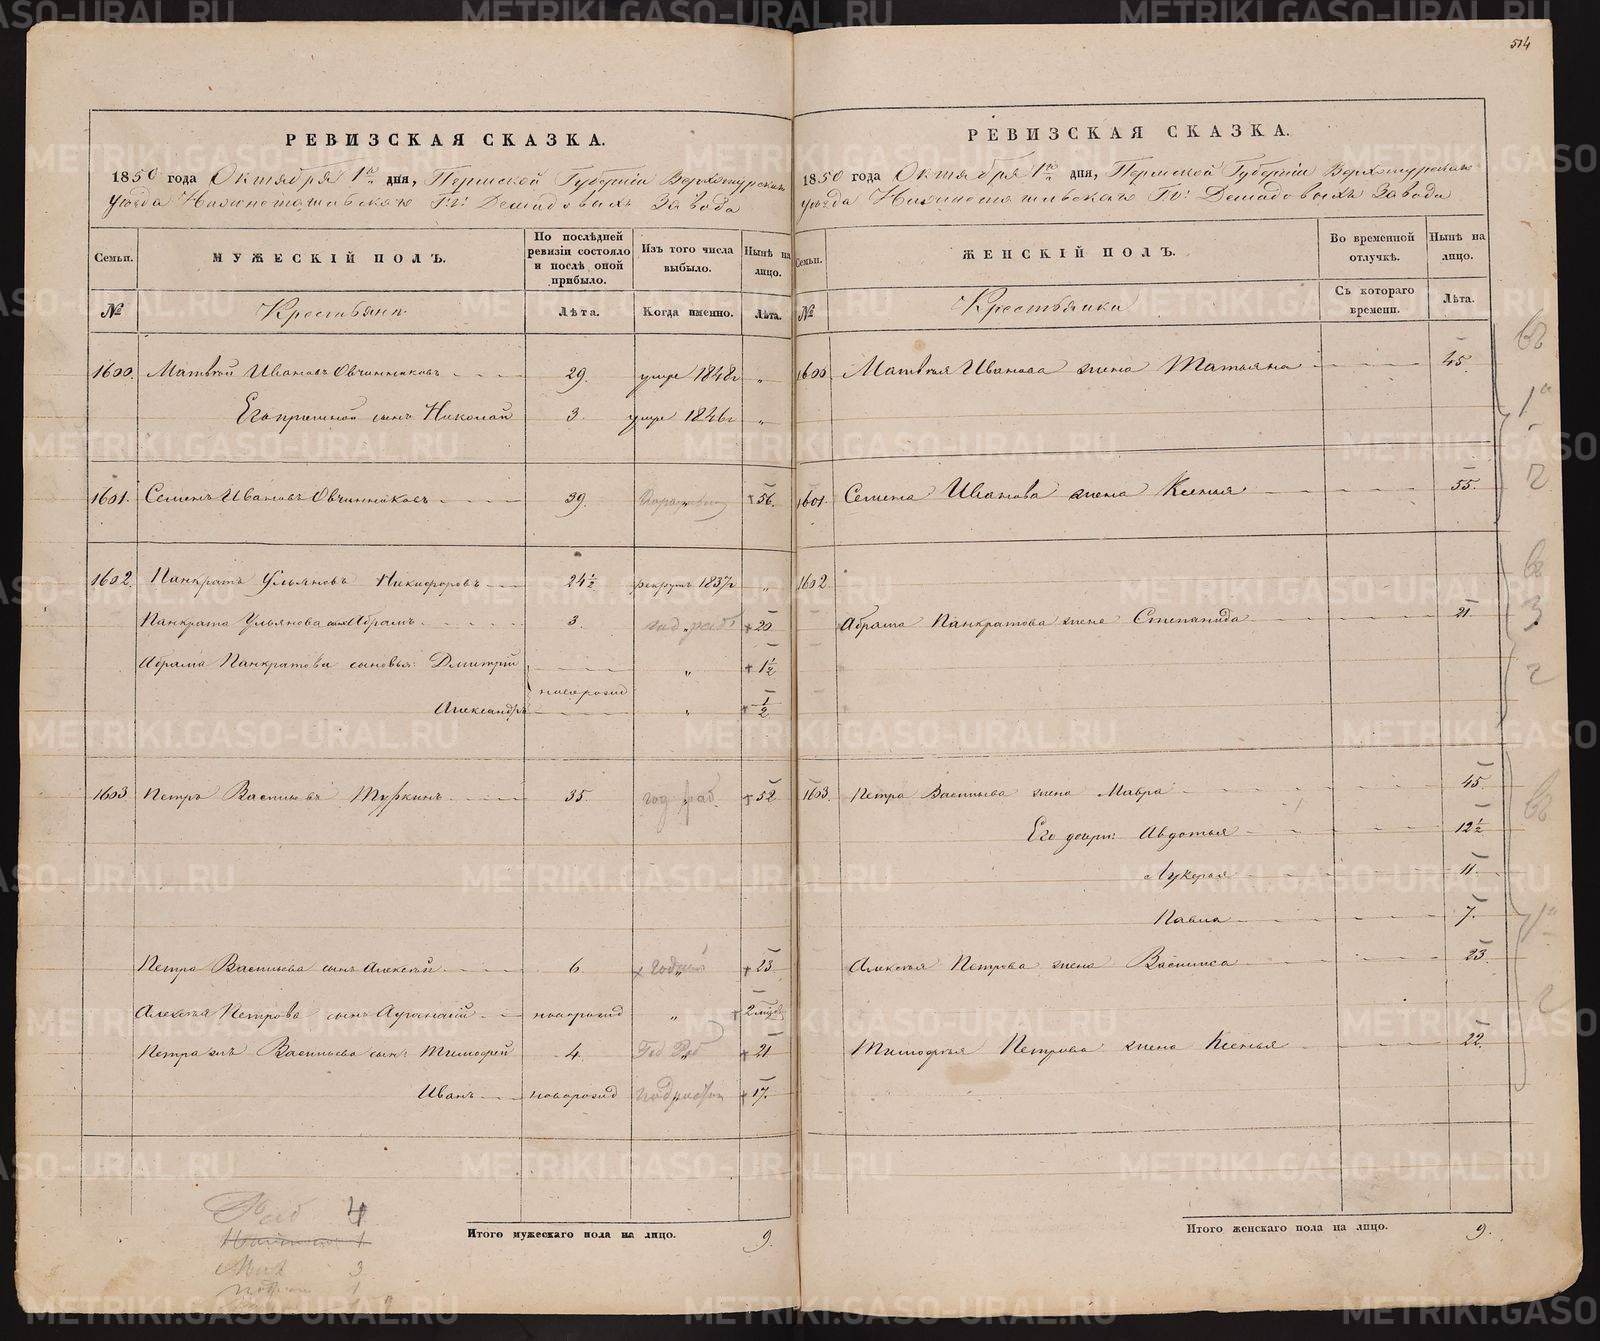 514
РЕВИЗСКАЯ СКАЗКА.
1850 года Октября 1го дня, Пермской Губернiи Верхотурскаго
уѣзда Нижнетагильскаго Гг: Демидовыхъ Завода
Семьи. МУЖЕСКIЙ ПОЛЪ. По послѣдней ревизiи состояло и послѣ оной прибыло. Изъ того числа выбыло. Нынѣ на лицо.
№ Крестьяне Лѣта. Когда именно. Лѣта.
1600. Матвѣй Ивановъ Овчинниковъ 29. умре 1848г „
Его приемной сынъ Николай 3. умре 1846г „
1601. Семенъ Ивановъ Овчинниковъ 39. „ + 56.
1602. Панкратъ Ульяновъ Никифоровъ 24½ рекрутъ 1837г „
Панкрата Ульянова сынъ Абрамъ 3. „ + 20
Абрама Панкратова сыновья: Дмитрiй „ + 1½
новорожд
Александръ „ + ½
1603 Петръ Васильевъ Шуркинъ 35. год раб. + 52
Петра Васильева сынъ Алексѣй 6. + 23
Алексѣя Петрова сынъ Афанасiй новорожд „ + 2 мѣсяц
Петра жъ Васильева сынъ Тимофей 4. Год Раб + 21
Иванъ новорожд подростки + 17.
Раб 4
1
Мал 3
1
Итого мужескаго пола на лицо. 9.
РЕВИЗСКАЯ СКАЗКА.
1850 года Октября 1го дня, Пермской Губернiи Верхотурскаго
уѣзда Нижнетагильскаго Гг: Демидовыхъ Завода
Семьи. ЖЕНСКIЙ ПОЛЪ. Во временной отлучкѣ. Нынѣ на лицо.
№ Крестьянки Съ котораго времени. Лѣта.
1600 Матвѣя Иванова жена Татьяна 45.
1601 Семена Иванова жена Ксенья 55.
1602
Абрама Панкратова жена Степанида 21.
1603. Петра Васильева жена Мавра 45.
Его дочери: Авдотья 12½
Лукерья 11.
Павла 7.
Алексѣя Петрова жена Василиса 23.
Тимофея Петрова жена Ксенья 22.
Итого женскаго пола на лицо. 9.
METRIKI.GASO-URAL.RU